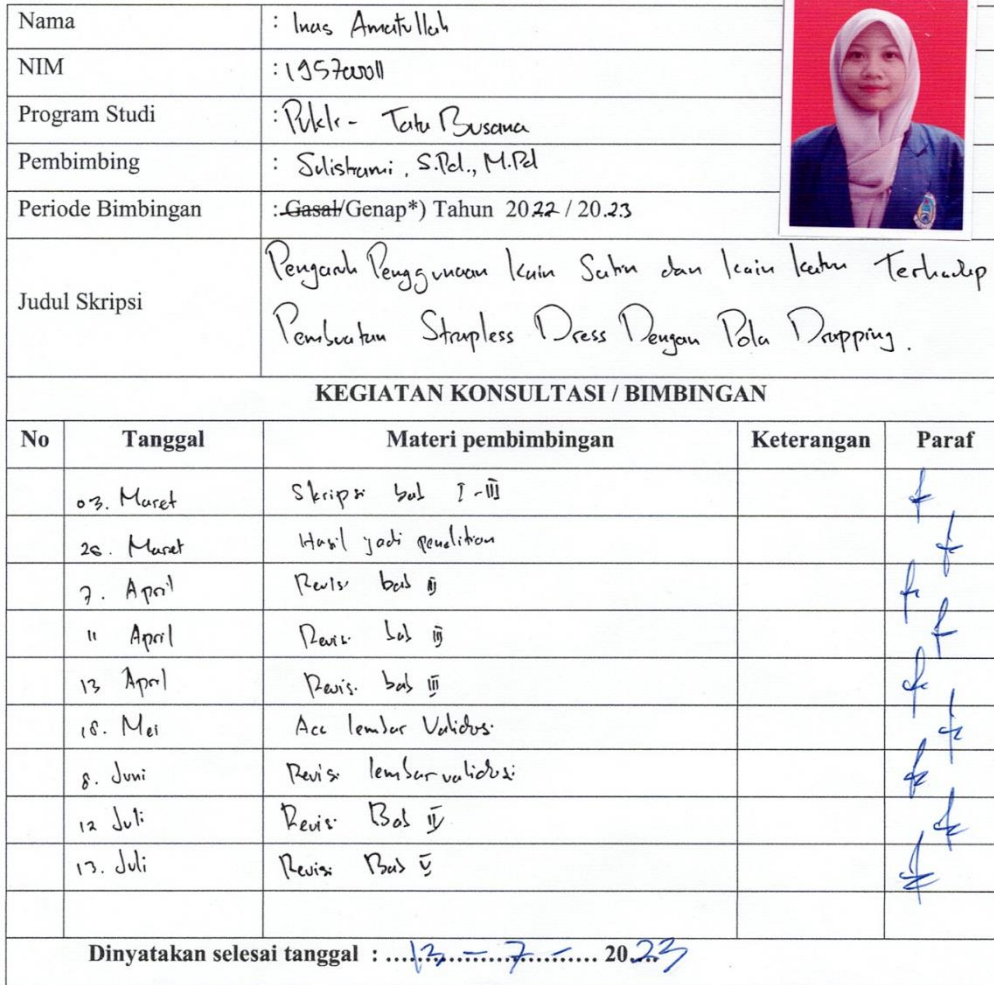 Nama : Inas Amatullah
NIM : 1957
Program Studi : - Tata Busana
Pembimbing : Sulistiami, S.Pd., M.Pd
Periode Bimbingan : Gasal/Genap*) Tahun 2022 / 2023
Judul Skripsi
Pengaruh Penggunaan Kain Satin dan kain katun Terhadap
Pembuatan Strapless Dress Dengan Pola Drapping.
KEGIATAN KONSULTASI / BIMBINGAN
No Tanggal Materi pembimbingan Keterangan Paraf
03. Maret Skripsi bab I - III
26. Maret Hasil jadi penelitian
7. April Revisi bab
11 April Revisi bab III
13 April Revisi bab III
Mei Acc lembar Validasi
8. Juni Revisi lembar validasi
12 Juli Revisi Bab
13. Juli Revisi Bab V
Dinyatakan selesai tanggal : 13 - 7 - 2023